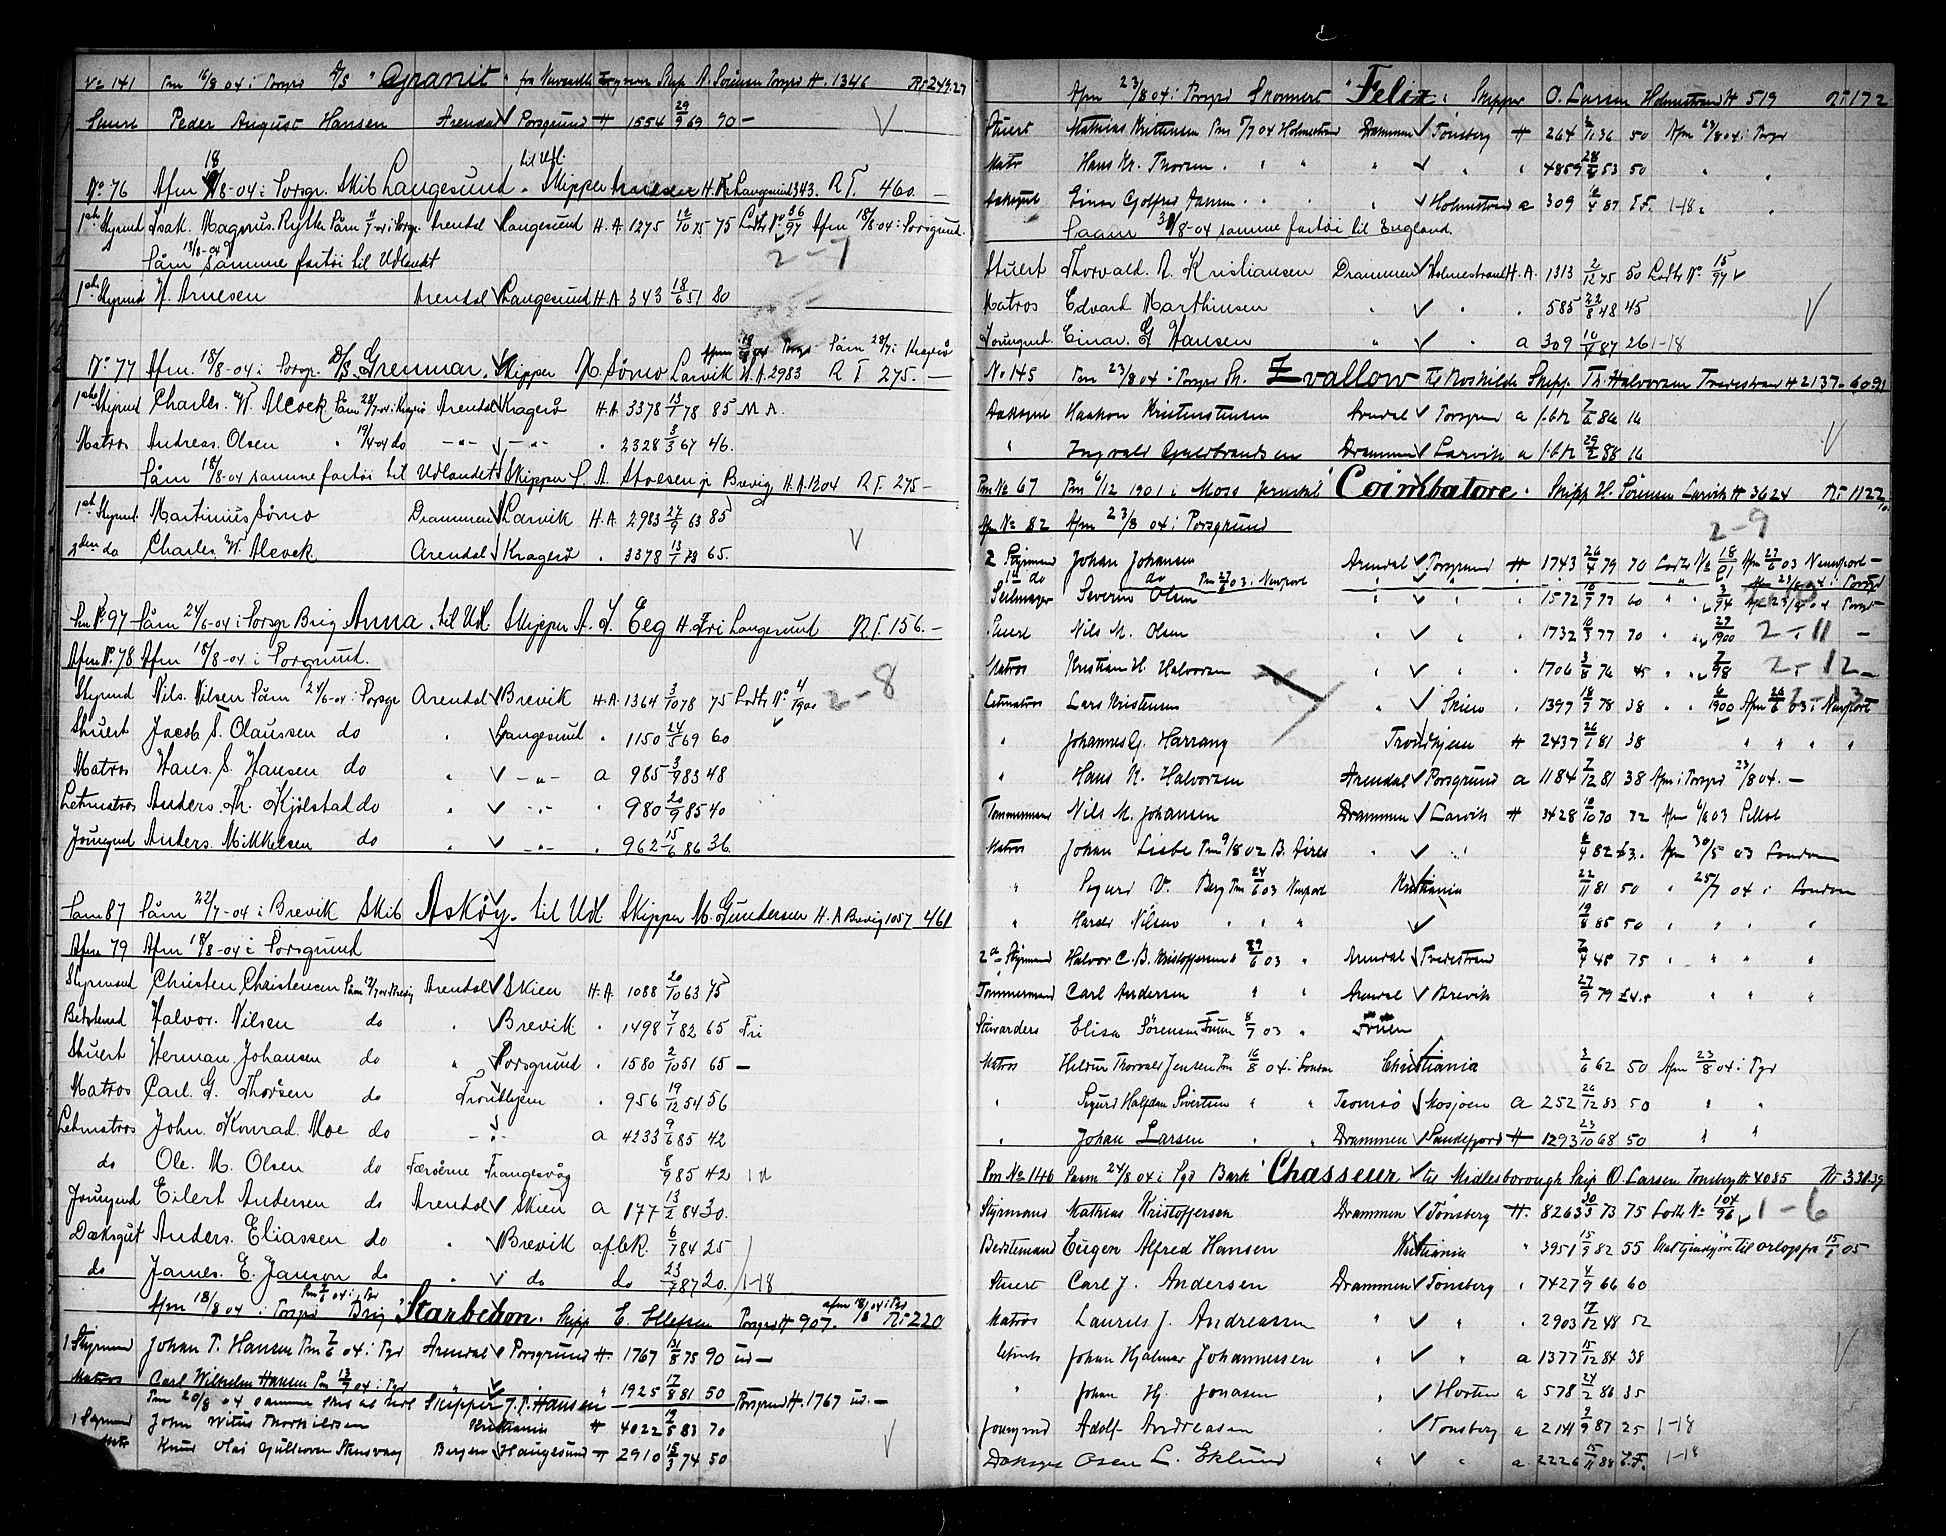 No 141 Pm 16/8 04 i Porsgrd A/S "Granit" fra Skip A. Sørensen Porsgrd H. 1346 RT 249.27
Stuert Peder August Hansen Arendal Porsgrund H 1554 29/9 69 90 —
No 76 Afm 18/8-04 i Porsgr. Skib Langesund. til Udl: Skipper H. A. Langesund 343. R.T. 460. —
1ste Styrmd Isak. Magnus. Rytter Arendal Langesund H.A. 1275 12/10 75 75 Lodts No 36/97 Afm 18/8-04 i Porsgrund.
Påm 18/8-04 samme fartøi til Udlandet 2-7
1ste Styrmd H. Arnesen Arendal Langesund H.A 343 18/6 51 80
No 77 Afm. 18/8-04 i Porsgr. D/S. Grenmar. Skipper M. Sømo Larvik H.A. 2983 R T 275. —
1ste Styrmd Charles. W. Alcock Påm i Kragerø Arendal Kragerø H.A. 3378 13/1 78 85 M A.
Matros Andreas. Olsen do 2328 3/3 67 46.
Påm 18/8-04 samme fartøi til Udlandet Skipper S. A. Stoesen jr Brevig H.A. 1204 R.T. 275 —
1ste Styrmd. Martinius Sømo Drammen Larvik H.A. 2983 27/9 63 85
2den do Charles. W. Alcock Arendal Kragerø 3378 13/1 78 65.
Pm No 97 Påm 24/6-04 i Porsgr Brig Anna. til Udl Skipper A. L. Eeg H. Fri Langesund R.T. 156. —
Afm No 78 Afm 18/8-04 i Porsgrund.
Styrmd Nils. Nilsen Påm 24/6-04 i Porsgr Arendal Brevik H.A. 1364 3/10 78 75 Lodts No 4/1900 2-8
Stuert Jacob S. Olaussen do Langesund 1150 24/5 69 60
Matros Hans. S. Hansen do a 985 3/9 83 48
Letmatros Anders. Th. Kjølstad do 980 20/9 85 40
Jungmd Anders. Mikkelsen do 962 15/6 86 36.
Påm 87 Påm 22/7-04 i Brevik Skib Askøy. til Udl Skipper M. Gundersen H.A Brevig 1057 461
Afm 79 Afm 18/8-04 i Porsgrund
Styrmand Christen Christensen Arendal Skien H.A. 1088 20/10 63 75
Bestemd Halvor. Nilsen do Brevik 1498 7/1 82 65 Fri
Stuert Herman. Johansen do Porsgrund 1580 2/10 51 65 —
Matros Carl. G. Thorsen do Trondhjem 956 19/12 54 56
Letmatros John. Konrad. Moe do a 4233 9/6 85 42
do Ole. M. Olsen do Færøerne Frangesvåg 8/9 85 42
Jungmd Eilert Andersen do Arendal Skien a 177 13/2 84 30.
Dæksgut Anders. Eliassen do Brevik afblk. 6/7 84 25
do James. E. Janson do do do 23/7 87 20. 1-18
Afm 18/8 04 i Porsgrd Brig Starbedon. Skipp E. Ellefsen Porsgrd H 907. afm 18/8 04 i RT 220
1 Styrmand Johan P. Hansen Pm 7/6 04 i Pgd Arendal Porsgrund H. 1767 31/8 75 90 ud —
Matros Carl Wilhelm Hansen Pm 13/9 04 i Pgd 1925 17/8 81 50
Pm 20/8 04 samme skib til Udl Skipper J. P. Hansen Porsgrund H. 1767 ud. —
1 Styrmand John Witus Thorkildsen Kristiania H 4022 19/5 83 70
Knud Olai Gulliksen Stensvaag Bergen Haugesund H 2910 15/3 74 50
Afm 23/8 04 i Porsgrd Skonnert "Felix". Skipper O. Larsen Holmestrand H 519 RT 172
Stuert Mathias Kristensen Pm 5/7 04 Holmestrand Drammen Tønsberg H 264 2/11 36 50 Afm 23/8 04 i Porsgr
Matr Hans Kr. Thorsen 4859 28/6 53 50
Dæksgut Einar Gotfred Hansen Holmestrand a 309 16/4 87 1-18
Paam 31/8-04 samme fartøi til England.
Stuert Thorvald. A. Kristiansen Drammen Holmestrand H.A. 1313 2/12 75 50 Lodts No. 15/97
Matros Edvart Marthinsen 585 22/8 48 45
Jungmd. Einar. G Hansen a 309 16/4 87 26 1-18
No 145 Pm 23/8 04 i Porsgrd Sk. Zvallow til Roskilde Skipp. Th. Halvorsen Tvedestrand H 2137 - 60.91
Dæksgut Haakon Kristensen Arendal Porsgrund a f.blk 7/6 86 16
" Ingvald Guldbrandsen Drammen Larvik a f.blk 29/2 88 16
Pm No 67 Pm 6/12 1901 i Moss "Coimbatore". Skipp H. Sørensen Larvik H 3624 RT 1122
Afm No 82 Afm 23/8 04 i Porsgrund 2-9
2 Styrmand Johan Johansen Arendal Porsgrund H 1743 26/4 79 70 Lodts No 18/01 Afm 27/6 03 Newport —
1ste do do Pm 27/6 03 i Newport
Seilmager Severin Olsen 1572 10/9 77 60 3/94 Afm 23/8 04 Porsgr
Stuert Nils M. Olsen 1732 10/3 77 70 27/1900 2-11 —
Matros Kristian H. Halvorsen 1706 3/8 76 45 7/98 2-12 —
Letmatros Lars Kristensen Skien 1397 18/9 78 38 6/1900 Afm 26/6 03 i Newport
" Johannes G. Harrang Trondhjem H 2437 26/1 81 38
" Hans K. Halvorsen Arendal Porsgrund a 1184 7/12 81 38 Afm i Porsgrd 23/8 04. —
Tømmermand Nils M. Johansen Drammen Larvik H 3428 10/10 70 72 Afm 6/6 03
Matros Johan Liebe Pm 9/8 02 B. Aires 6/4 82 £3. Afm 30/5 03 London
" Sigurd V. Berg Pm 24/6 03 Newport Kristiania 22/11 81 50 25/7 04 i London
" Harald Nilsen 19/8 85 50
2den Styrmand Halvor C. B. Kristoffersen 29/6 03 Arendal Tvedestrand 7/4 48 75
Tømmermand Carl Andersen Arendal Brevik 27/9 79 £4.5
Stewardess Elisa Sørensen Fruen 8/7 03 Fruen
Matros Hildur Thorvald Jensen Pm 16/8 04 i London Christiania 3/6 62 50 Afm 23/8 04 i Pgd
" Sigurd Halfdan Sivertsen Tromsø Mosjøen a 252 26/12 83 50
" Johan Larsen Drammen Sandefjord H 1293 23/10 68 50
Pm No 146 Paam 24/8 04 i Pgd Bark "Chasseur" til Midlesborough Skip O. Larsen Tønsberg H 4085 RT 331.39
Styrmand Mathias Kristoffersen Drammen Tønsberg H. 8263 30/5 73 75 Lodts No 104/96 1-6
Bestemand Eugen Alfred Hansen Kristiania 3951 15/9 82 55 til orlogs fra 15/6 05
Stuert Carl J. Andersen Drammen Tønsberg 7427 4/9 66 60
Matros Laurits J. Andreassen 2903 17/12 48 52
Letmts Johan Hjalmar Johannessen a 1377 15/12 84 38
" Johan Hj. Jonasen Horten a 578 24/2 86 35
Jungmd Adolf Andreasen Tønsberg a 2141 2/9 87 25 1-18
Dæksgut Osen L. Eklund a 2226 15/11 88 1-18